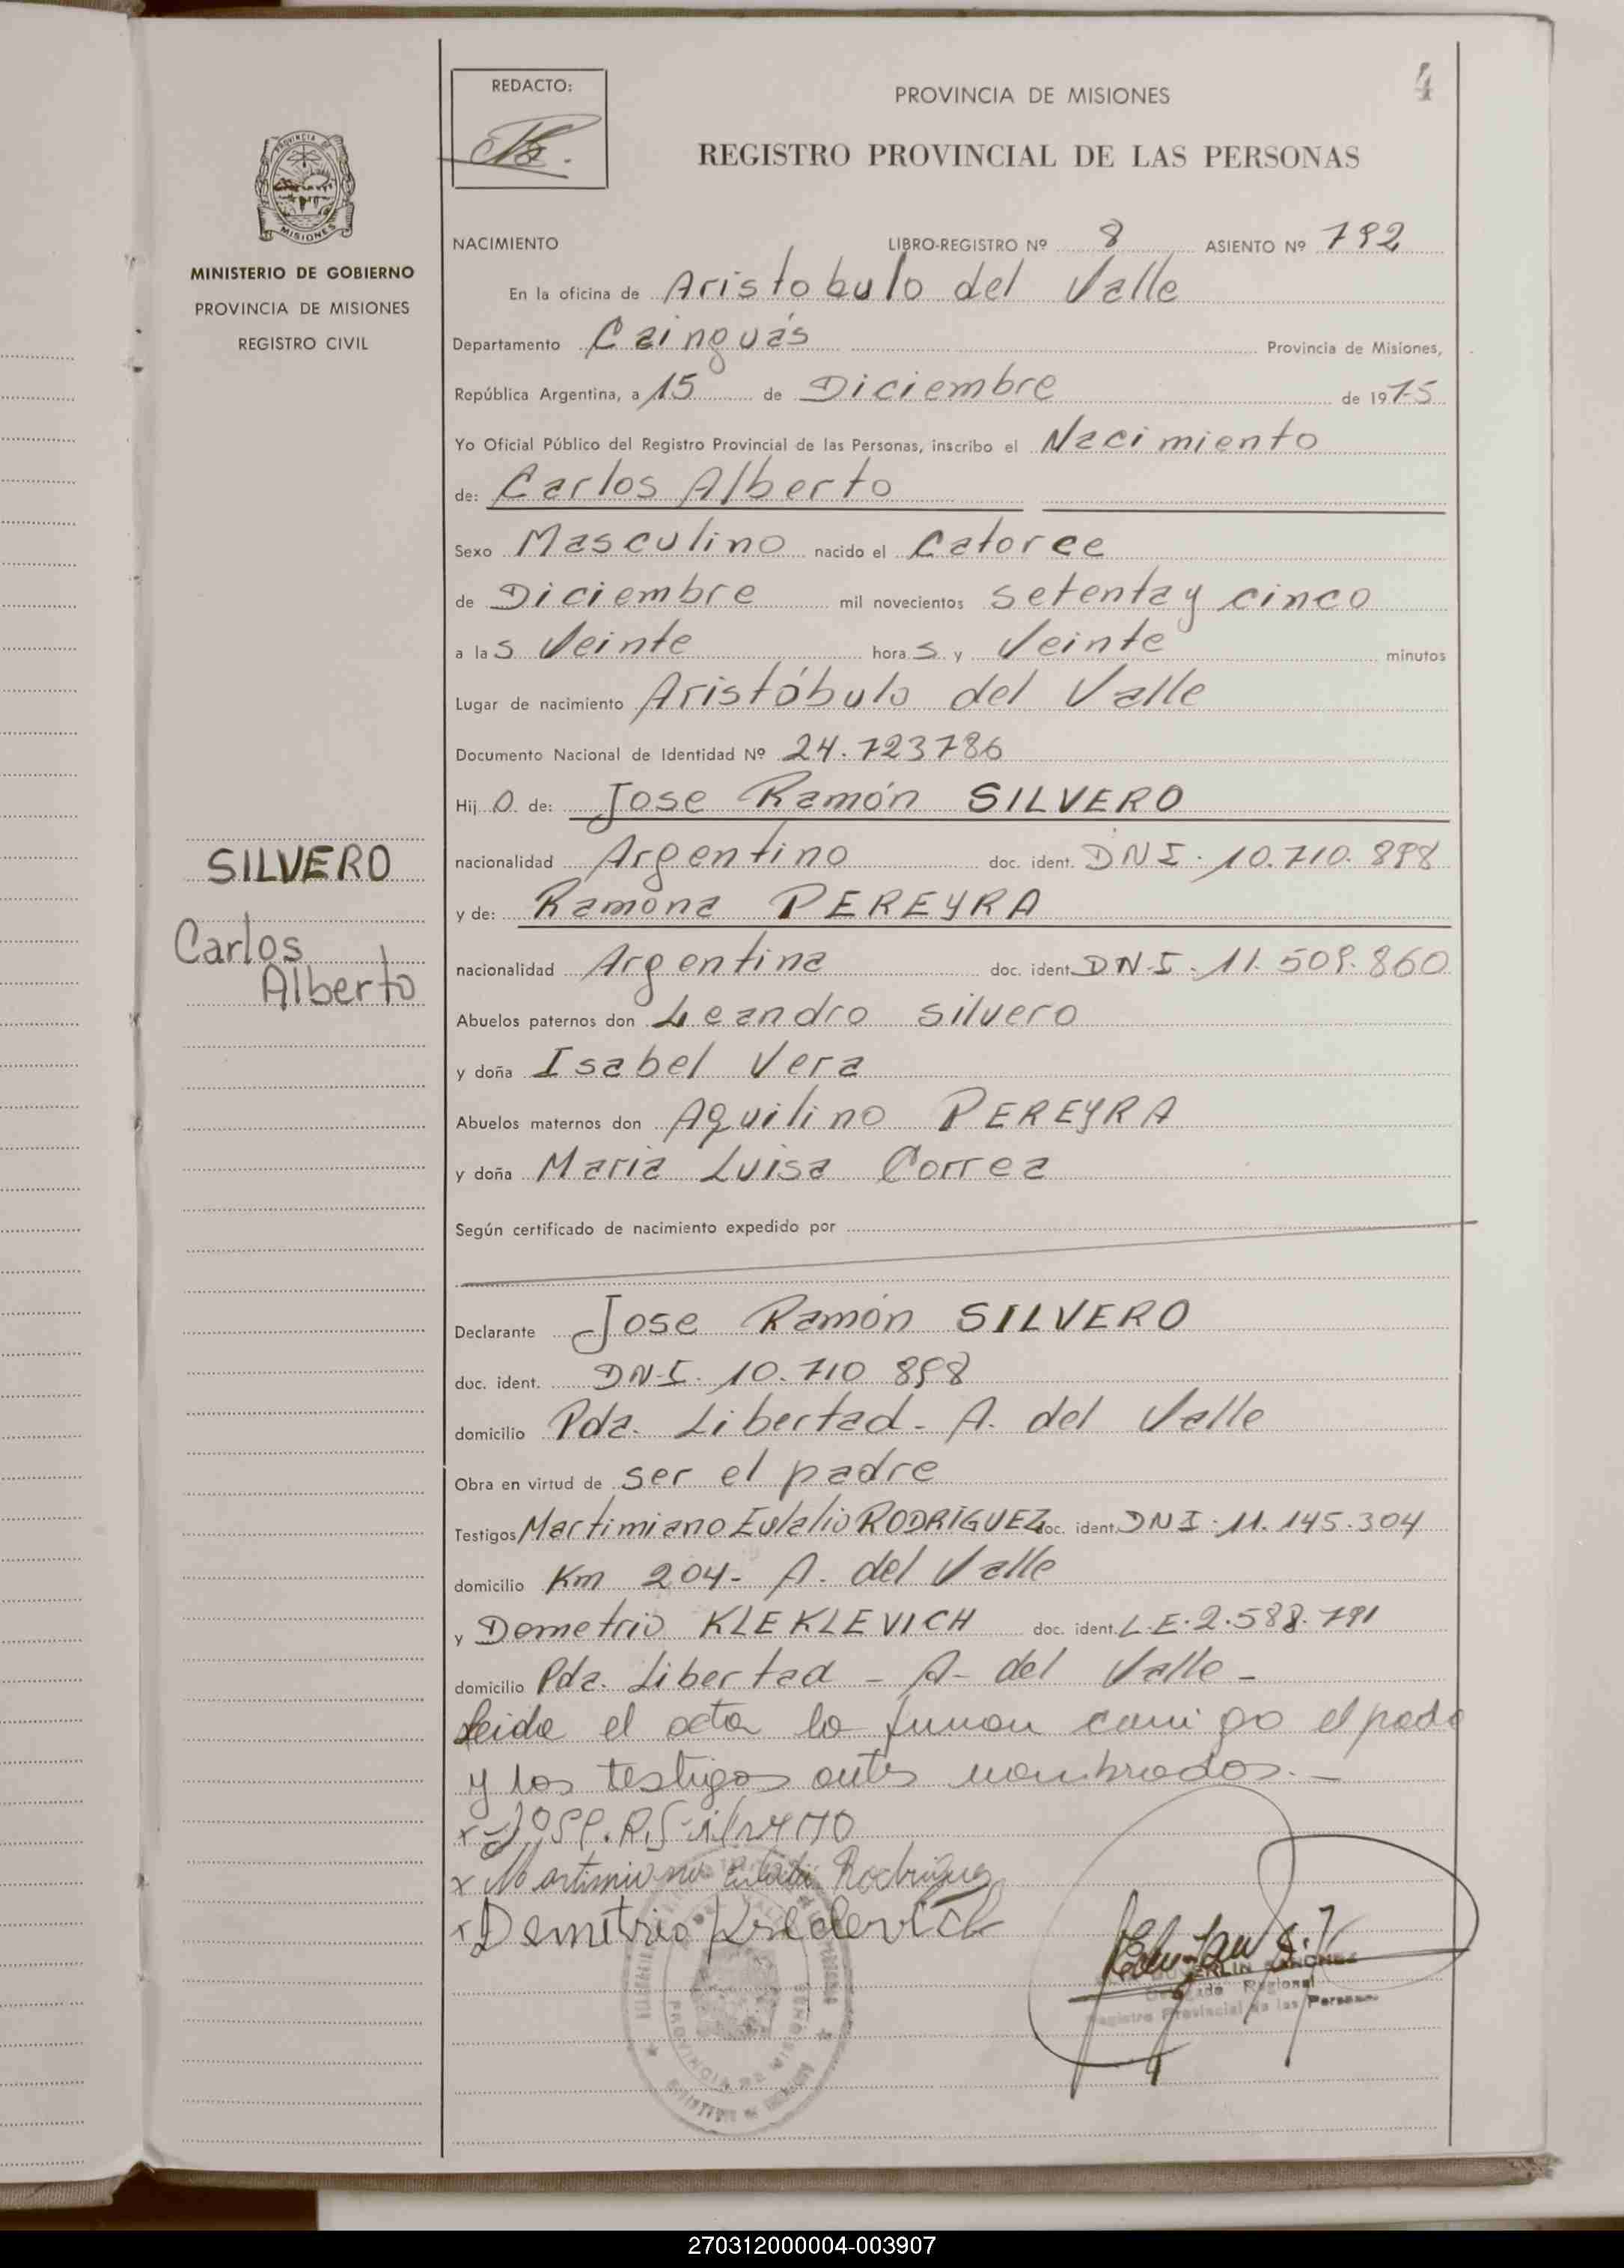 4
REDACTO:
PROVINCIA DE MISIONES
REGISTRO PROVINCIAL DE LAS PERSONAS
PROVINCIA DE
MISIONES
MINISTERIO DE GOBIERNO
PROVINCIA DE MISIONES
REGISTRO CIVIL
NACIMIENTO LIBRO-REGISTRO Nº 8 ASIENTO Nº 792
En la oficina de Aristobulo del Valle
Departamento Cainguás Provincia de Misiones,
República Argentina, a 15 de Diciembre de 1975
Yo Oficial Público del Registro Provincial de las Personas, inscribo el Nacimiento
de: Carlos Alberto
Sexo Masculino nacido el Catorce
de Diciembre mil novecientos setenta y cinco
a las Veinte horas y Veinte minutos
Lugar de nacimiento Aristóbulo del Valle
Documento Nacional de Identidad Nº 24.723786
Hijo de: Jose Ramón SILVERO
SILVERO
Carlos
Alberto
nacionalidad Argentino doc. ident. DNI. 10.710.898
y de: Ramona PEREYRA
nacionalidad Argentina doc. ident. DN-I. 11.509.860
Abuelos paternos don Leandro Silvero
y doña Isabel Vera
Abuelos maternos don Aquilino PEREYRA
y doña Maria Luisa Correa
Según certificado de nacimiento expedido por
Declarante Jose Ramón SILVERO
doc. ident. DN-I. 10.710 898
domicilio Pda. Libertad - A. del Valle
Obra en virtud de ser el padre
Testigos Martimiano Eulalio RODRIGUEZ doc. ident. DNI. 11.145.304
domicilio Km 204- A. del Valle
y Demetrio KLEKLEVICH doc. ident. L.E. 2.588.791
domicilio Pda. Libertad - A- del Valle -
Leida el acta la firman conmigo el padre
y los testigos antes nombrados.-
x Jose. R. Silvero
x Martimiano Eulalio Rodriguez
x Demitrio
SANCHEZ
Delegado Regional
Registro Provincial de las Personas
PROVINCIA DE MISIONES
270312000004-003907